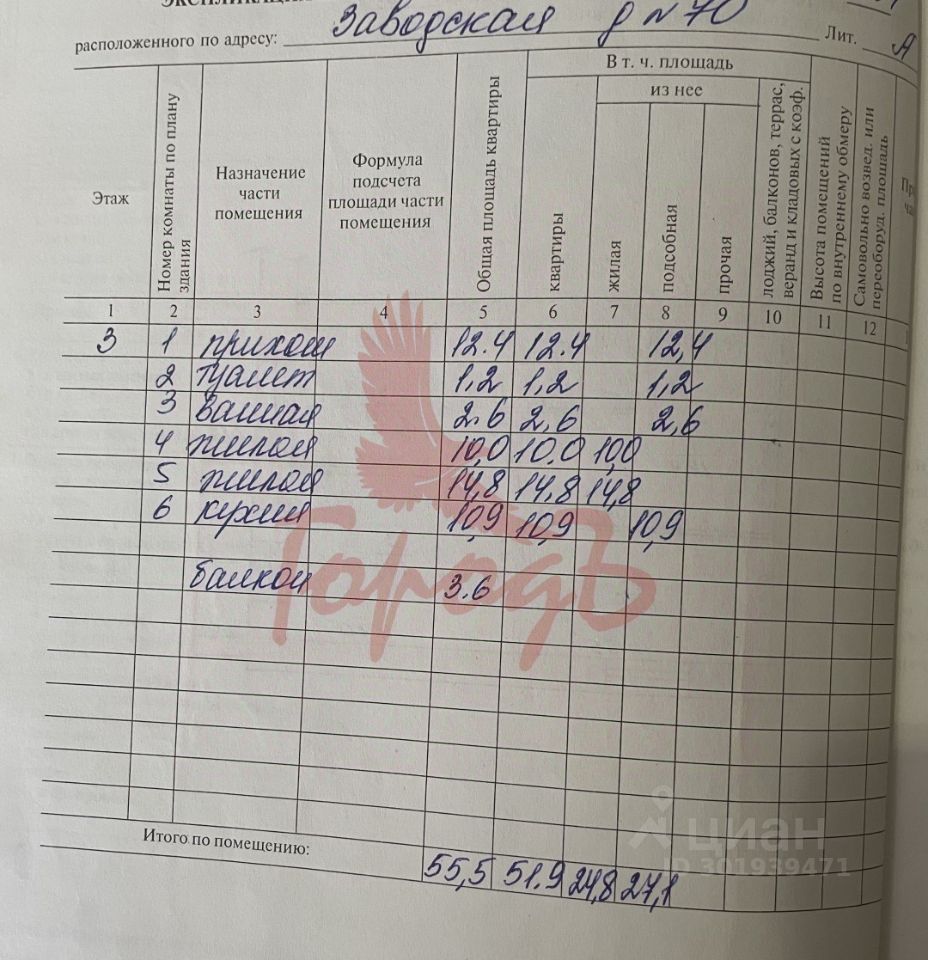 расположенного по адресу: Заводская д № 70 Лит. А
В т. ч. площадь
из нее
Этаж
Номер комнаты по плану здания
Назначение части помещения
Формула подсчета площади части помещения
Общая площадь квартиры
квартиры
жилая
подсобная
прочая
лоджий, балконов, террас, веранд и кладовых с коэф.
Высота помещений по внутреннему обмеру
Самовольно возвед. или переоборуд. площадь
1 2 3 4 5 6 7 8 9 10 11 12
3 1 прихож 12.4 12.4 12,4
2 туалет 1,2 1,2 1,2
3 ванная 2.6 2,6 2,6
4 жилая 10,0 10.0 10,0
5 жилая 14,8 14.8 14,8
6 кухня 10,9 10,9 10,9
балкон 3.6
Итого по помещению: 55,5 51.9 24,8 27,1
ГородЪ
циан
ID 301939471